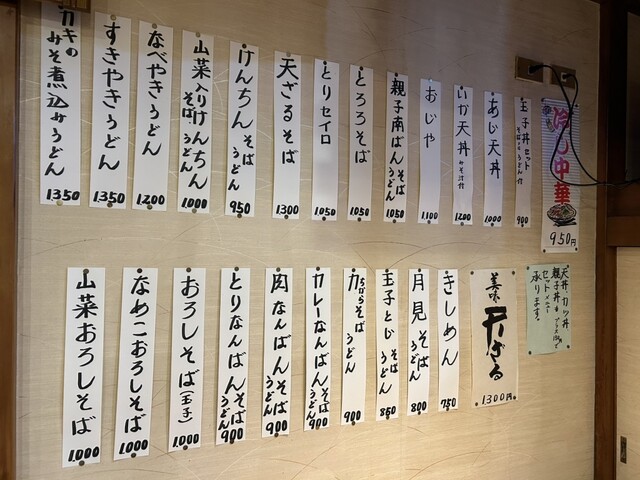 冷し中華
950円
玉子丼セット
そば うどん付
900
あじ天丼
1.000
いか天丼
みそ汁付
1200
おじや
1.100
親子南ばん そば うどん
1.050
とろろそば
1.050
とりセイロ
1.050
天ざるそば
1300
けんちん そば うどん
950
山菜入りけんちん そば うどん
1.000
なべやきうどん
1.200
すきやきうどん
1350
カキの
みそ煮込みうどん
1350
天丼.カツ丼
親子丼も
セットメニュー
承ります。
美味
天ざる
1300円
きしめん
750
月見 そば うどん
800
玉子とじ そば うどん
850
力 そば うどん
900
カレーなんばん そば うどん
900
肉なんばん そば うどん
900
とりなんばん そば うどん
900
おろしそば(玉子)
1.000
なめこおろしそば
1.000
山菜おろしそば
1.000